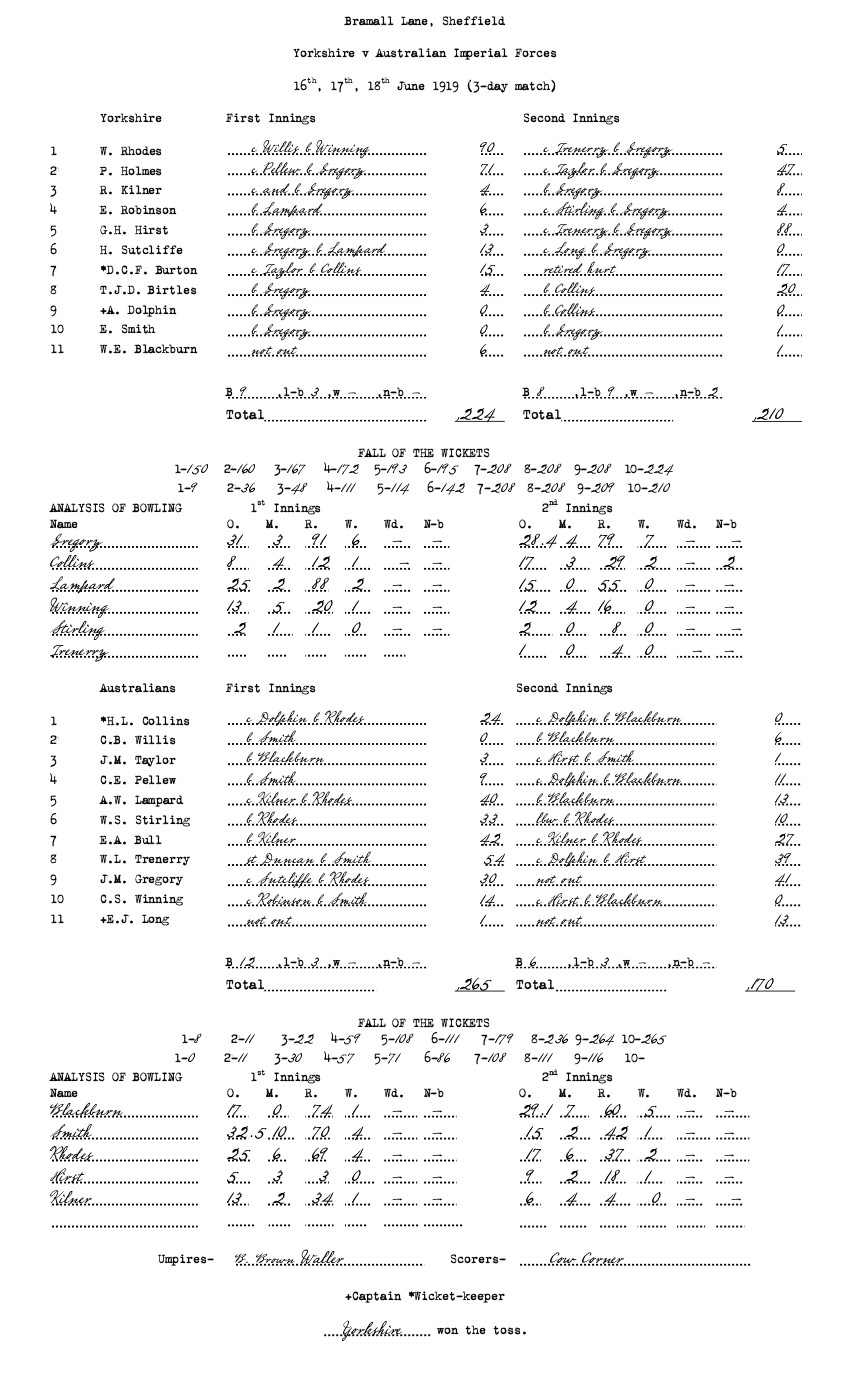 Bramall Lane, Sheffield
Yorkshire v Australian Imperial Forces
16th, 17th, 18th June 1919 (3-day match)
Yorkshire First Innings Second Innings
1 W. Rhodes c Willis b Winning 90 c Trenerry b Gregory 5
2 P. Holmes c Pellew b Gregory 71 c Taylor b Gregory 47
3 R. Kilner c and b Gregory 4 b Gregory 8
4 E. Robinson b Lampard 6 c Stirling b Gregory 4
5 G.H. Hirst b Gregory 3 c Trenerry b Gregory 88
6 H. Sutcliffe c Gregory b Lampard 13 c Long b Gregory 0
7 *D.C.F. Burton c Taylor b Collins 15 retired hurt 17
8 T.J.D. Birtles b Gregory 4 b Collins 20
9 +A. Dolphin b Gregory 0 b Collins 0
10 E. Smith b Gregory 0 b Gregory 1
11 W.E. Blackburn not out 6 not out 1
B 9 ,l-b 3 ,w – ,n-b – B 8 ,l-b 9 ,w – ,n-b 2
Total 224 Total 210
FALL OF THE WICKETS
1-150 2-160 3-167 4-172 5-193 6-195 7-208 8-208 9-208 10-224
1-9 2-36 3-48 4-111 5-114 6-142 7-208 8-208 9-209 10-210
ANALYSIS OF BOWLING 1st Innings 2nd Innings
Name O. M. R. W. Wd. N-b O. M. R. W. Wd. N-b
Gregory 31 3 91 6 – – 28.4 4 79 7 – –
Collins 8 4 12 1 – – 17 3 29 2 – 2
Lampard 25 2 88 2 – – 15 0 55 0 – –
Winning 13 5 20 1 – – 12 4 16 0 – –
Stirling 2 1 1 0 – – 2 0 8 0 – –
Trenerry 1 0 4 0 – –
Australians First Innings Second Innings
1 *H.L. Collins c Dolphin b Rhodes 24 c Dolphin b Blackburn 0
2 C.B. Willis b Smith 0 b Blackburn 6
3 J.M. Taylor b Blackburn 3 c Hirst b Smith 1
4 C.E. Pellew b Smith 9 c Dolphin b Blackburn 11
5 A.W. Lampard c Kilner b Rhodes 40 b Blackburn 13
6 W.S. Stirling b Rhodes 33 lbw b Rhodes 10
7 E.A. Bull b Kilner 42 c Kilner b Rhodes 27
8 W.L. Trenerry st Duncan b Smith 54 c Dolphin b Hirst 39
9 J.M. Gregory c Sutcliffe b Rhodes 30 not out 41
10 C.S. Winning c Robinson b Smith 14 c Hirst b Blackburn 0
11 +E.J. Long not out 1 not out 13
B 12 ,l-b 3 ,w – ,n-b – B 6 ,l-b 3 ,w – ,n-b –
Total 265 Total 170
FALL OF THE WICKETS
1-8 2-11 3-22 4-59 5-108 6-111 7-179 8-236 9-264 10-265
1-0 2-11 3-30 4-57 5-71 6-86 7-108 8-111 9-116 10-
ANALYSIS OF BOWLING 1st Innings 2nd Innings
Name O. M. R. W. Wd. N-b O. M. R. W. Wd. N-b
Blackburn 17 0 74 1 – – 29.1 7 60 5 – –
Smith 32.5 10 70 4 – – 15 2 42 1 – –
Rhodes 25 6 69 4 – – 17 6 37 2 – –
Hirst 5 3 3 0 – – 9 2 18 1 – –
Kilner 13 2 34 1 – – 6 4 4 0 – –
Umpires- B. Brown Waller Scorers- Cow Corner
+Captain *Wicket-keeper
Yorkshire won the toss.